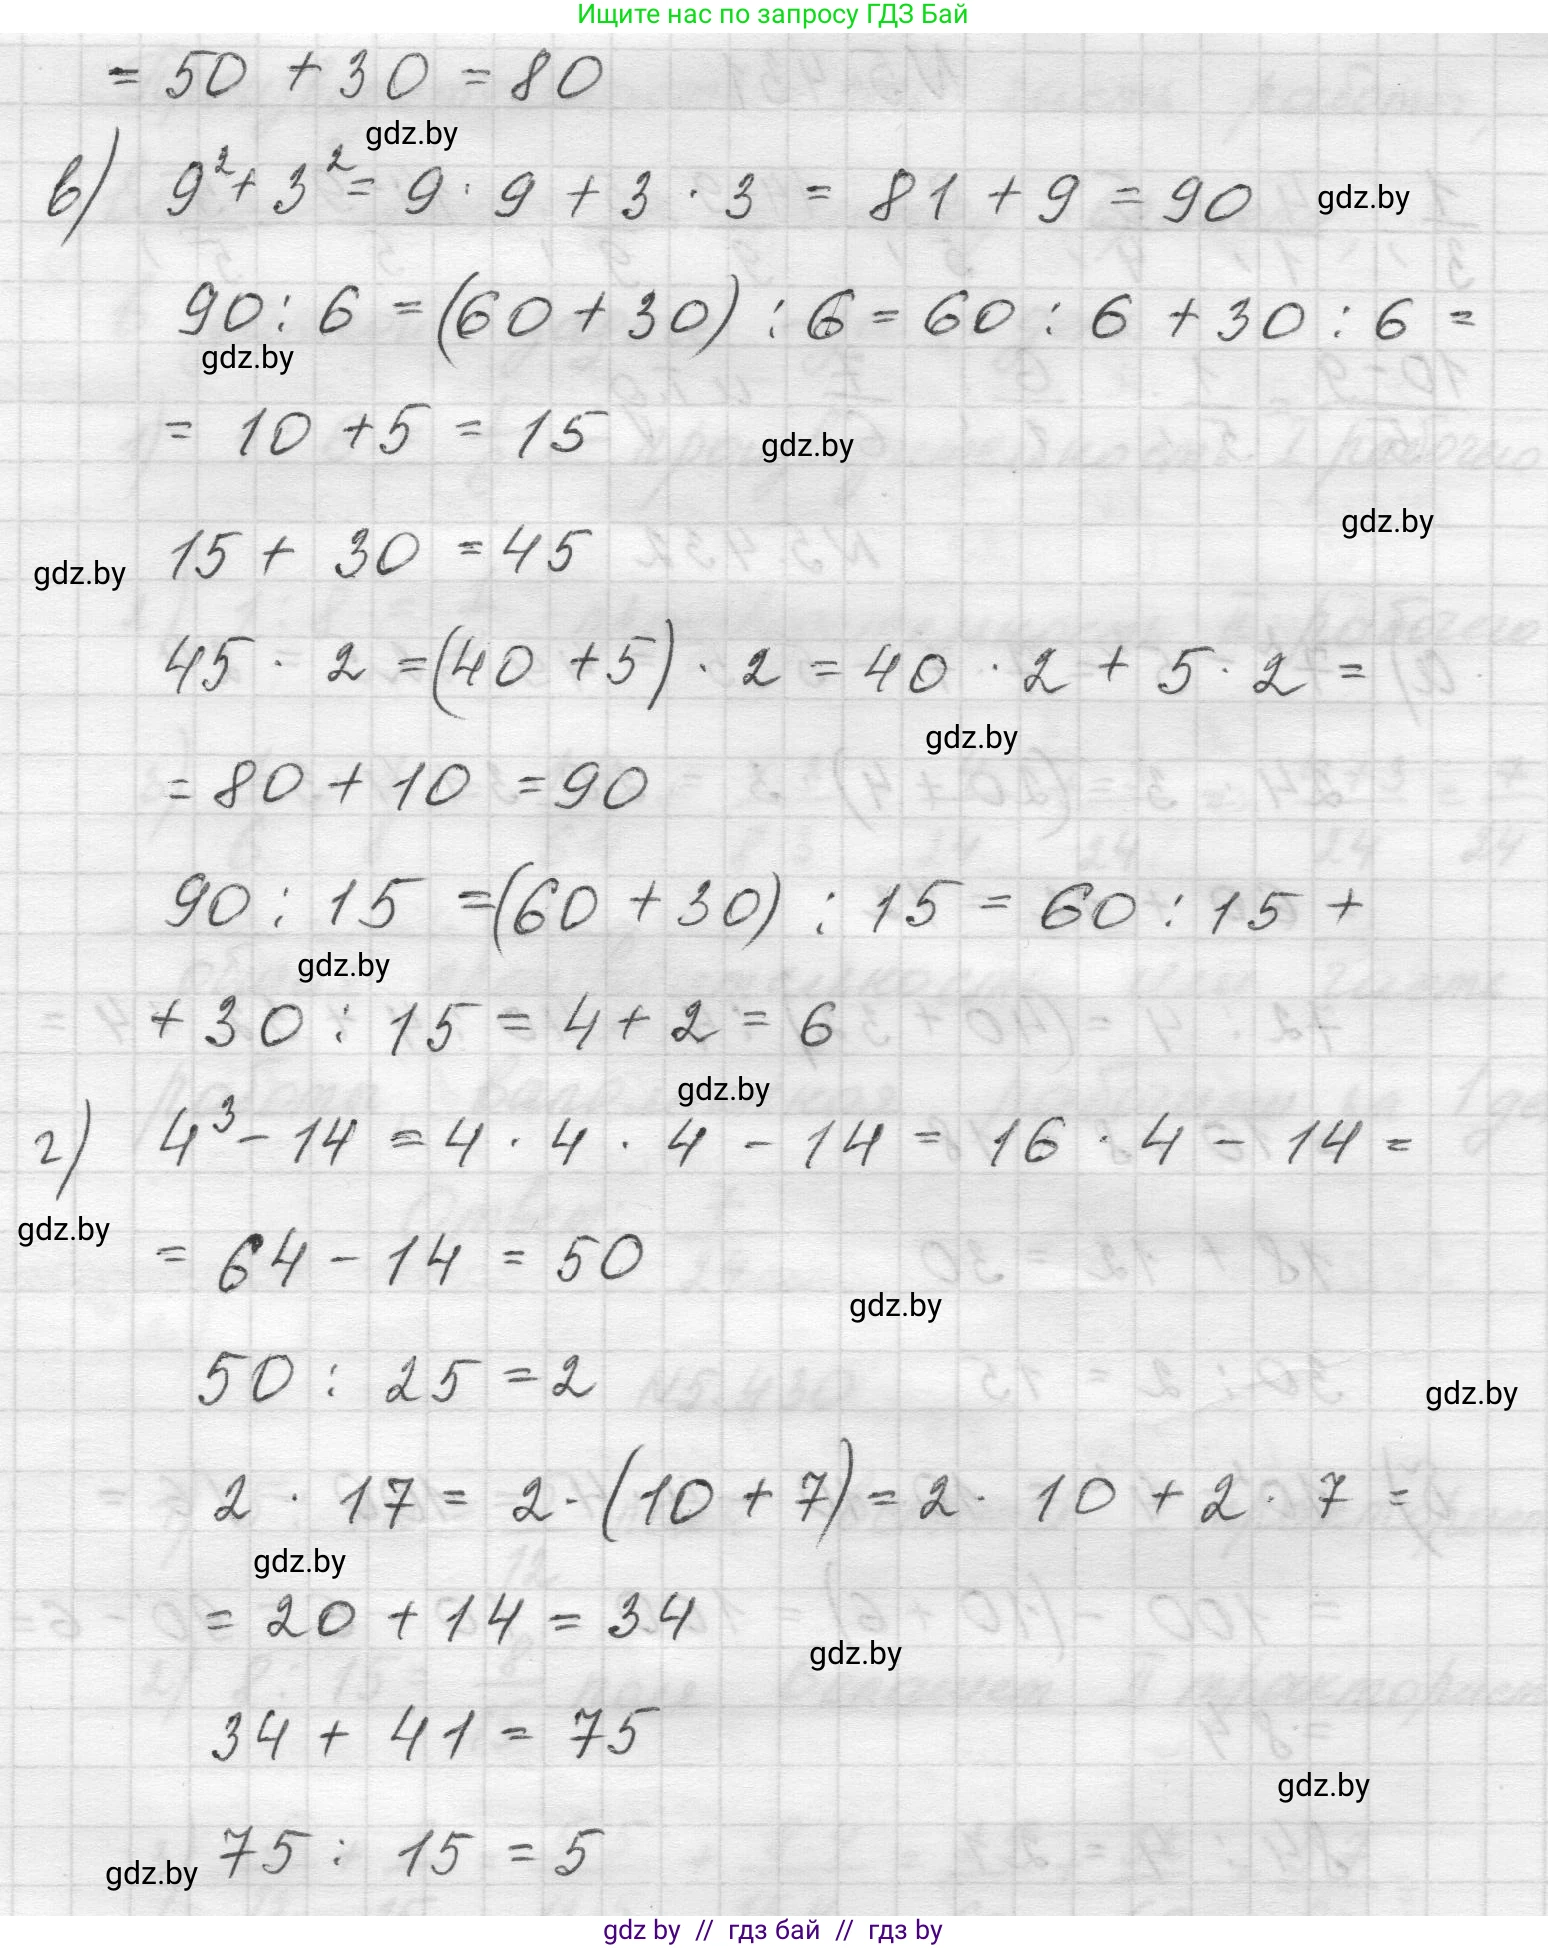 Ищите нас по запросу ГДЗ Бай
= 50 + 30 = 80
gdz.by
в) 9² + 3² = 9 · 9 + 3 · 3 = 81 + 9 = 90
gdz.by
90 : 6 = (60 + 30) : 6 = 60 : 6 + 30 : 6 =
gdz.by
= 10 + 5 = 15
gdz.by
gdz.by
15 + 30 = 45
gdz.by
45 · 2 = (40 + 5) · 2 = 40 · 2 + 5 · 2 =
gdz.by
= 80 + 10 = 90
90 : 15 = (60 + 30) : 15 = 60 : 15 +
gdz.by
+ 30 : 15 = 4 + 2 = 6
gdz.by
г) 4³ - 14 = 4 · 4 · 4 - 14 = 16 · 4 - 14 =
gdz.by
= 64 - 14 = 50
gdz.by
50 : 25 = 2
gdz.by
2 · 17 = 2 · (10 + 7) = 2 · 10 + 2 · 7 =
gdz.by
= 20 + 14 = 34
gdz.by
34 + 41 = 75
gdz.by
75 : 15 = 5
gdz.by
gdz by // гдз бай // гдз by